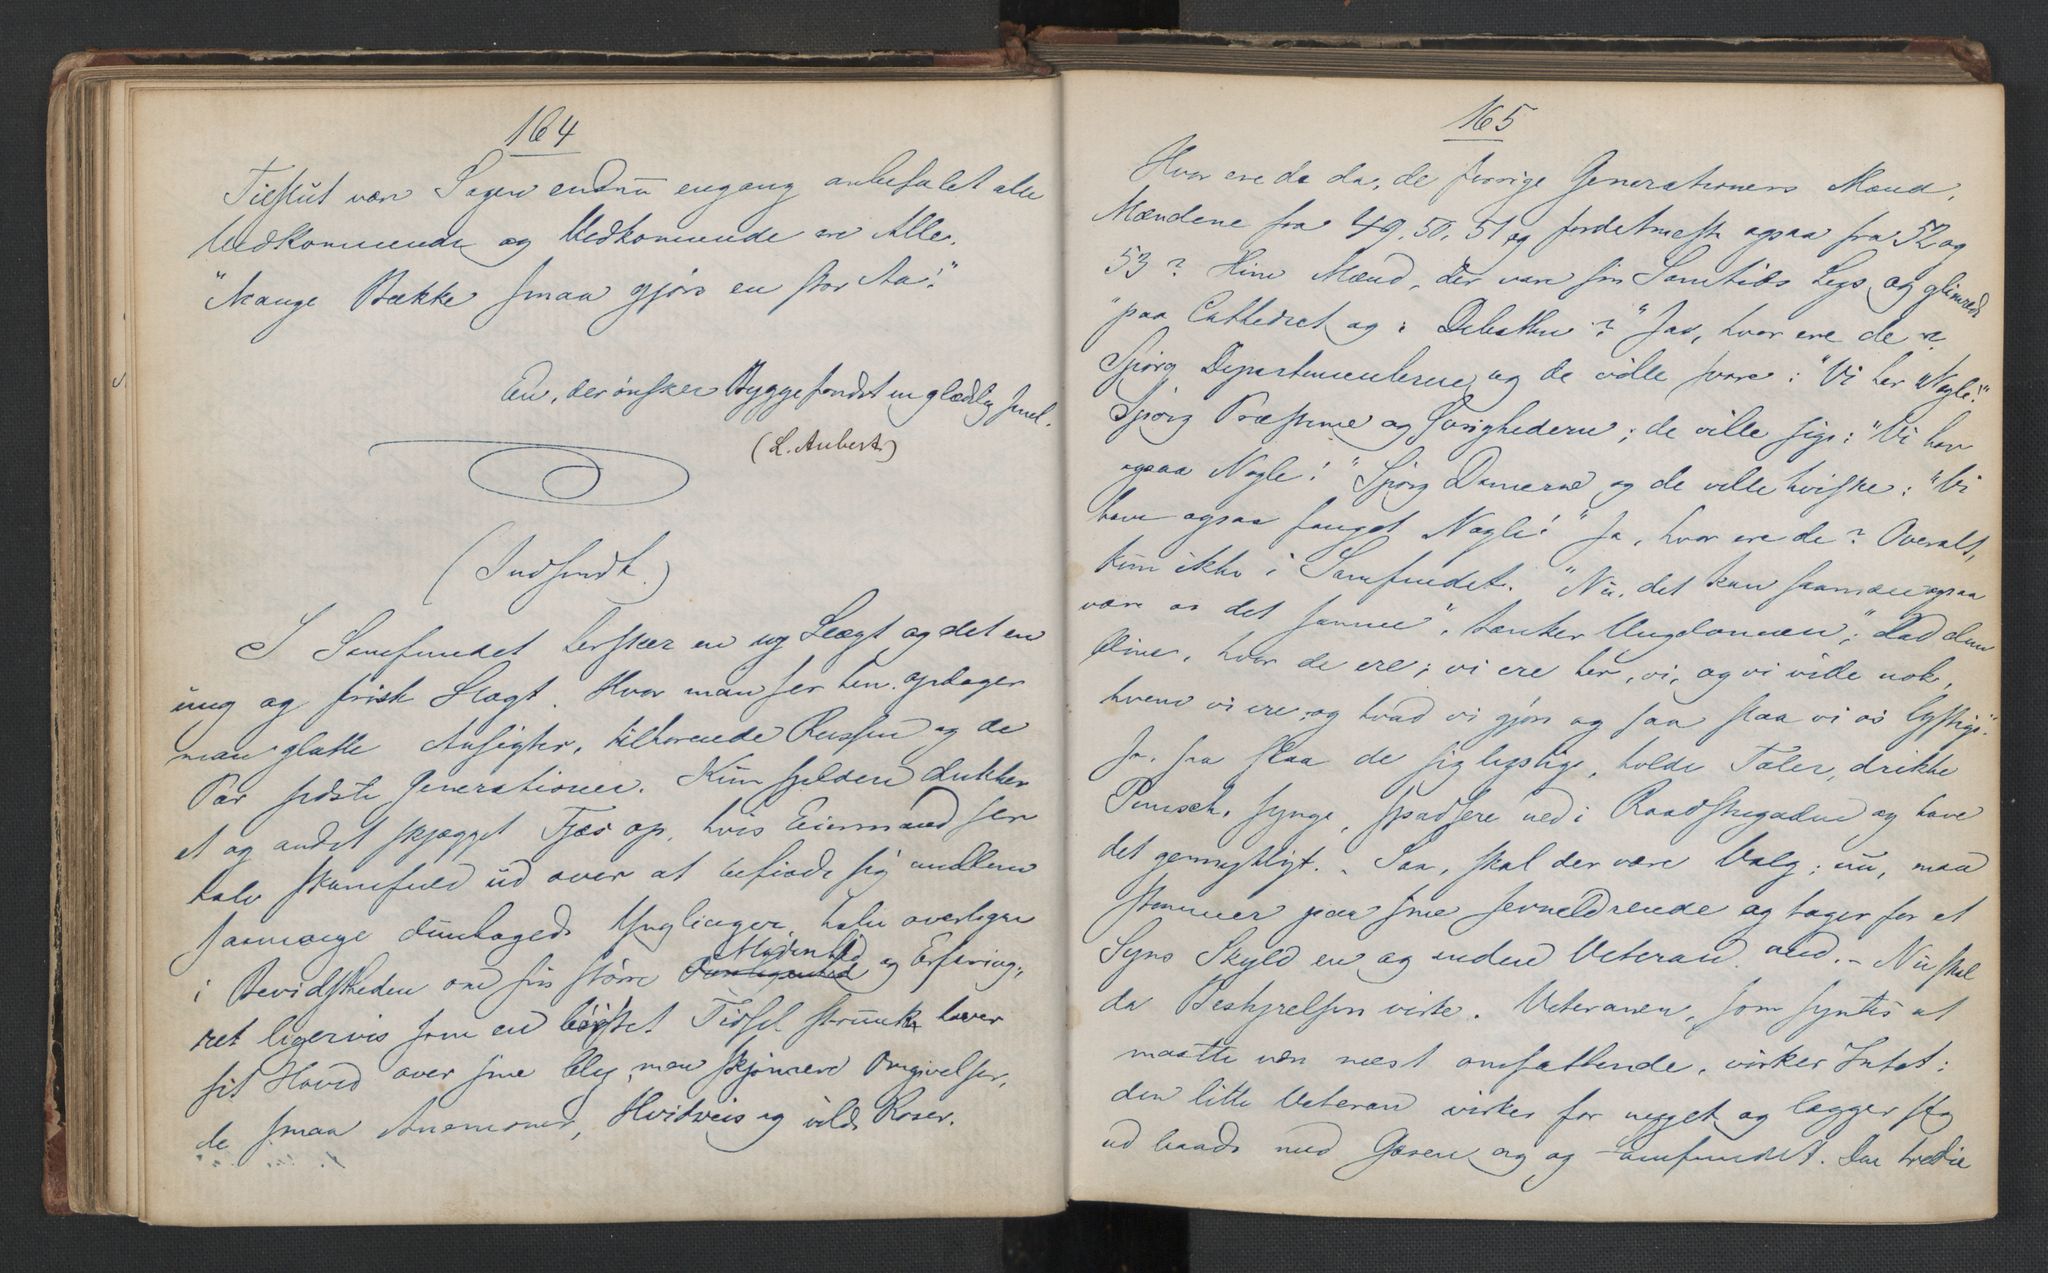 164
Tilslut være Sagen endnu engang anbefalet alle
Vedkommende og Vedkommende ere Alle.
"Mange Bække smaa gjøre en stor Aa!"
En, der ønsker Byggefondet en glædelig Juel.
(L. Aubert.)
(Indsendt.)
I Samfundet hersker en ny Slægt og det en
ung og frisk Slægt. Hvor man ser hen opdager
man glatte Ansigter, tilhørende Russen og de
Par sidste Generationer. Kun sjelden dukker
et og andet skjægget Fjæs op, hvis Eiermand ser
halv skamfuld ud over at befinde sig mellem
saamange dunhagede Ynglinger, halv overlegen
i Bevidstheden om sin større Modenhed og Erfaring;
ret ligervis som en Tidsel strunk hæver
sit Hoved over sine men skjønnere Omgivelser,
de smaa Anemoner, Hvidveis og vilde Roser.
165
Hvor ere da da, de forrige Generationers Mænd,
Mændene fra 49, 50, 51 og fordetmeste ogsaa fra 52 og
53? Hine Mænd, der vare sin Samtids Lys og glimrede
"paa Cathedret og i Debatten?" Ja, hvor ere de?
Spørg Departementerne og de ville svare: "Vi har Nogle!"
Spørg Præsterne og Sorighederne; de ville sige: "Vi have
ogsaa Nogle!" Spørg Damerne og de ville hviske: "Vi
have ogsaa fanget Nogle!" Ja, hvor ere de? Overalt,
kun ikke i Samfundet. "Nu, det kan saamæn ogsaa
være os det samme", tænker Ungdommen; "Lad dem
være, hvor de ere; vi ere her, vi, og vi vide nok,
hvem vi ere og hvad vi gjøre og saa slaa vi os lystige".
Ja, saa slaa de sig lystige, holde Taler, drikke
Punsch, synge, spadsere ned i Raadstugaden og have
det gemytligt. – Saa, skal der være Valg; nu, man
stemmer paa sine Jevnaldrende og tager for et
Syns Skyld en og anden Veteran med. – Nu skal
da Bestyrelsen virke. Veteranen, som syntes at
maatte være mest omfattende, virker Intet;
den lille Veteran virker for meget og lægger sig
ud baade med og Samfundet. Den tredie